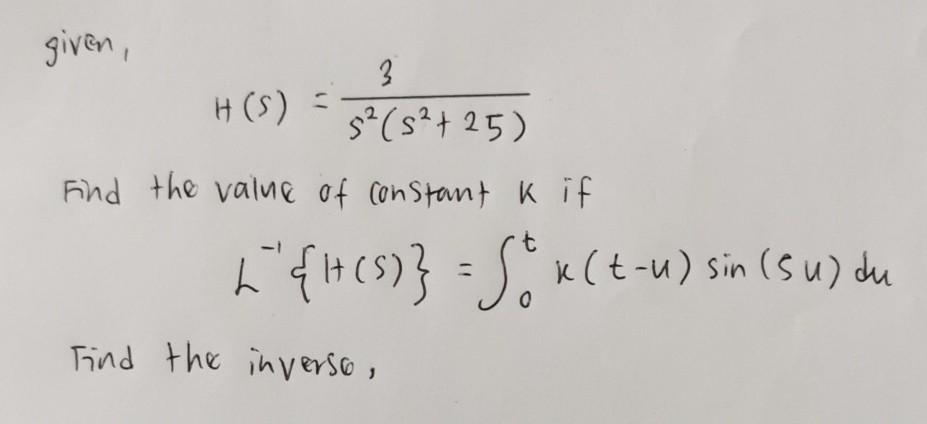 given,
H(S) = 3 / s²(s²+25)
Find the value of constant k if
L⁻¹{H(S)} = ∫₀ᵗ k(t-u) sin(5u) du
Find the inverse,